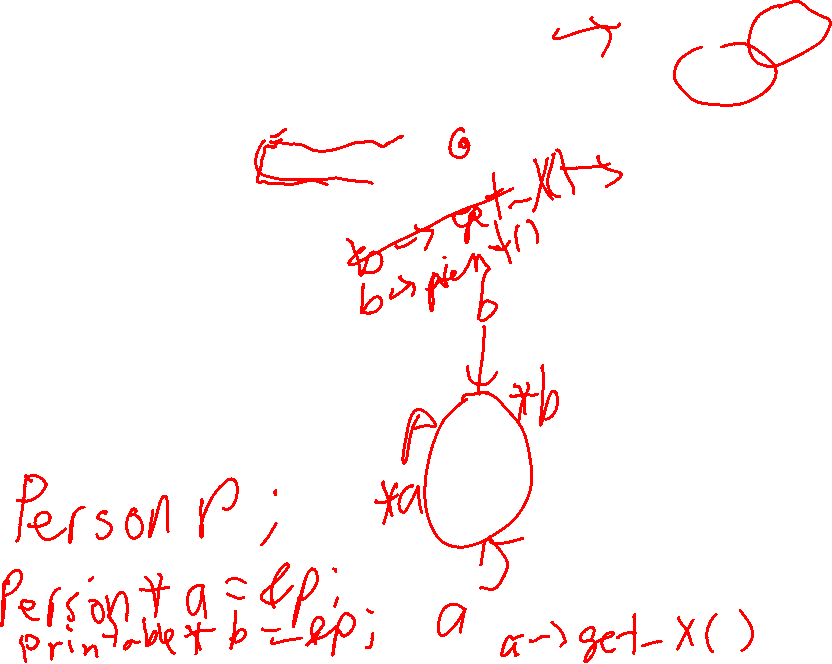 b->get_X()
b->print()
b
*b
P
*a
Person P;
Person* a = &P;
printable* b = &p;
a
a->get_X()